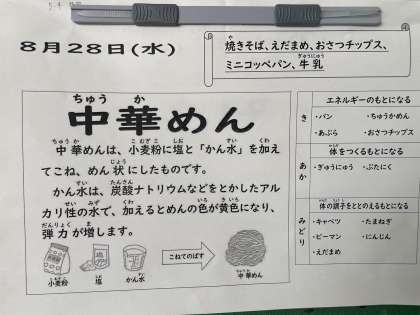 8月28日(水)
焼きそば、えだまめ、おさつチップス、
ミニコッペパン、牛乳
中華めん
中華めんは、小麦粉に塩と「かん水」を加え
てこね、めん状にしたものです。
かん水は、炭酸ナトリウムなどをとかしたアル
カリ性の水で、加えるとめんの色が黄色になり、
弾力が増します。
小麦粉
塩
かん水
こねてのばす
中華めん
き
エネルギーのもとになる
・パン ・ちゅうかめん
・あぶら ・おさつチップス
あか
体をつくるもとになる
・ぎゅうにゅう ・ぶたにく
みどり
体の調子をととのえるもとになる
・キャベツ ・たまねぎ
・ピーマン ・にんじん
・えだまめ